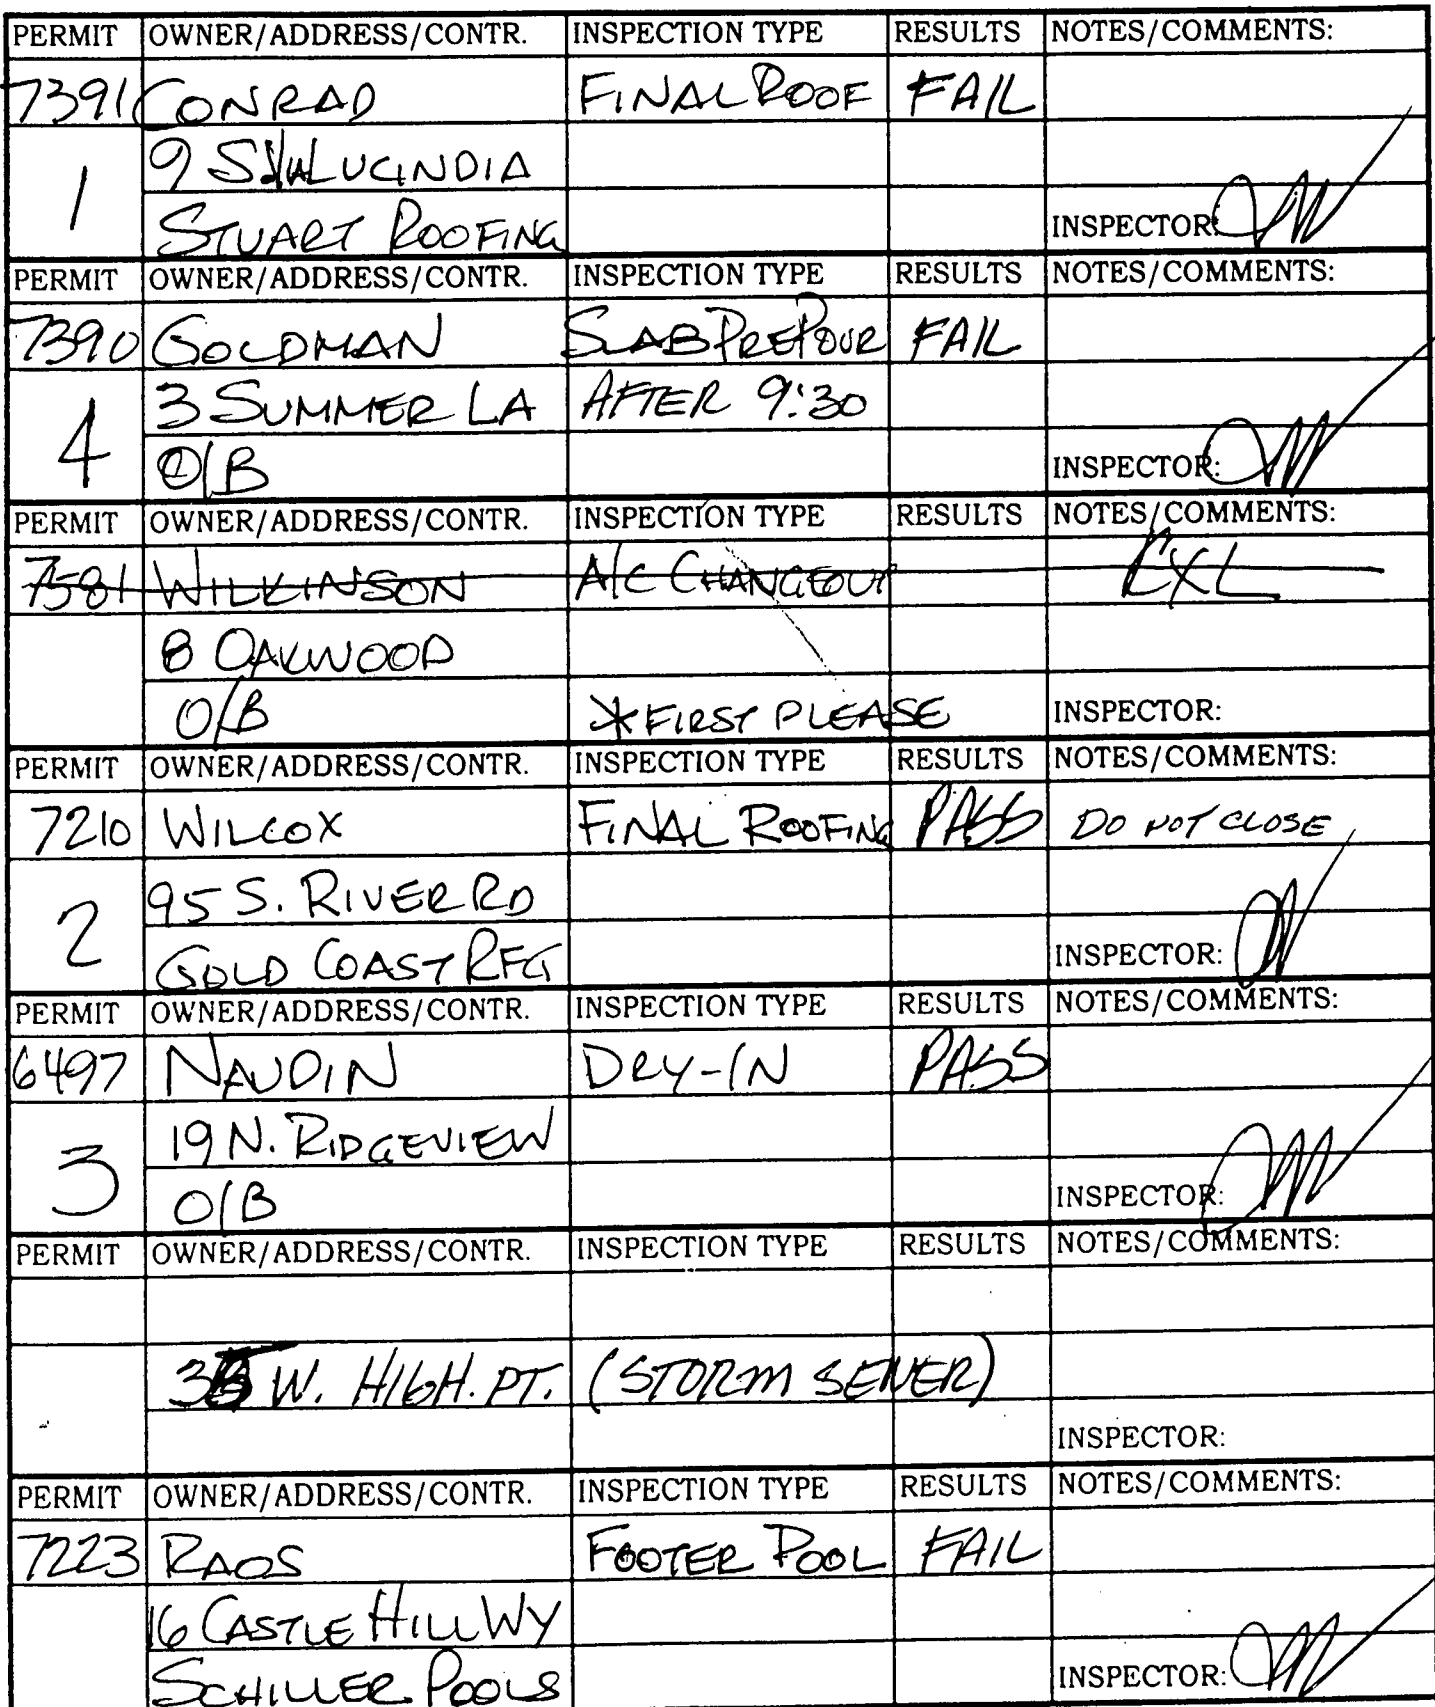 PERMIT OWNER/ADDRESS/CONTR. INSPECTION TYPE RESULTS NOTES/COMMENTS:
7391 CONRAD FINAL ROOF FAIL
1 9 S LUCINDIA
STUART ROOFING INSPECTOR:
PERMIT OWNER/ADDRESS/CONTR. INSPECTION TYPE RESULTS NOTES/COMMENTS:
7390 GOLDMAN SLAB PREPOUR FAIL
4 3 SUMMER LA AFTER 9:30
O/B INSPECTOR:
PERMIT OWNER/ADDRESS/CONTR. INSPECTION TYPE RESULTS NOTES/COMMENTS:
7581 WILKINSON A/C CHANGEOUT CXL
8 OAKWOOD
O/B *FIRST PLEASE INSPECTOR:
PERMIT OWNER/ADDRESS/CONTR. INSPECTION TYPE RESULTS NOTES/COMMENTS:
7210 WILCOX FINAL ROOFING PASS DO NOT CLOSE
2 95 S. RIVER RD
GOLD COAST RFG INSPECTOR:
PERMIT OWNER/ADDRESS/CONTR. INSPECTION TYPE RESULTS NOTES/COMMENTS:
6497 NAUDIN DRY-IN PASS
3 19 N. RIDGEVIEW
O/B INSPECTOR:
PERMIT OWNER/ADDRESS/CONTR. INSPECTION TYPE RESULTS NOTES/COMMENTS:
W. HIGH. PT. (STORM SEWER)
INSPECTOR:
PERMIT OWNER/ADDRESS/CONTR. INSPECTION TYPE RESULTS NOTES/COMMENTS:
7223 RAOS FOOTER POOL FAIL
16 CASTLE HILL WY
SCHILLER POOLS INSPECTOR: